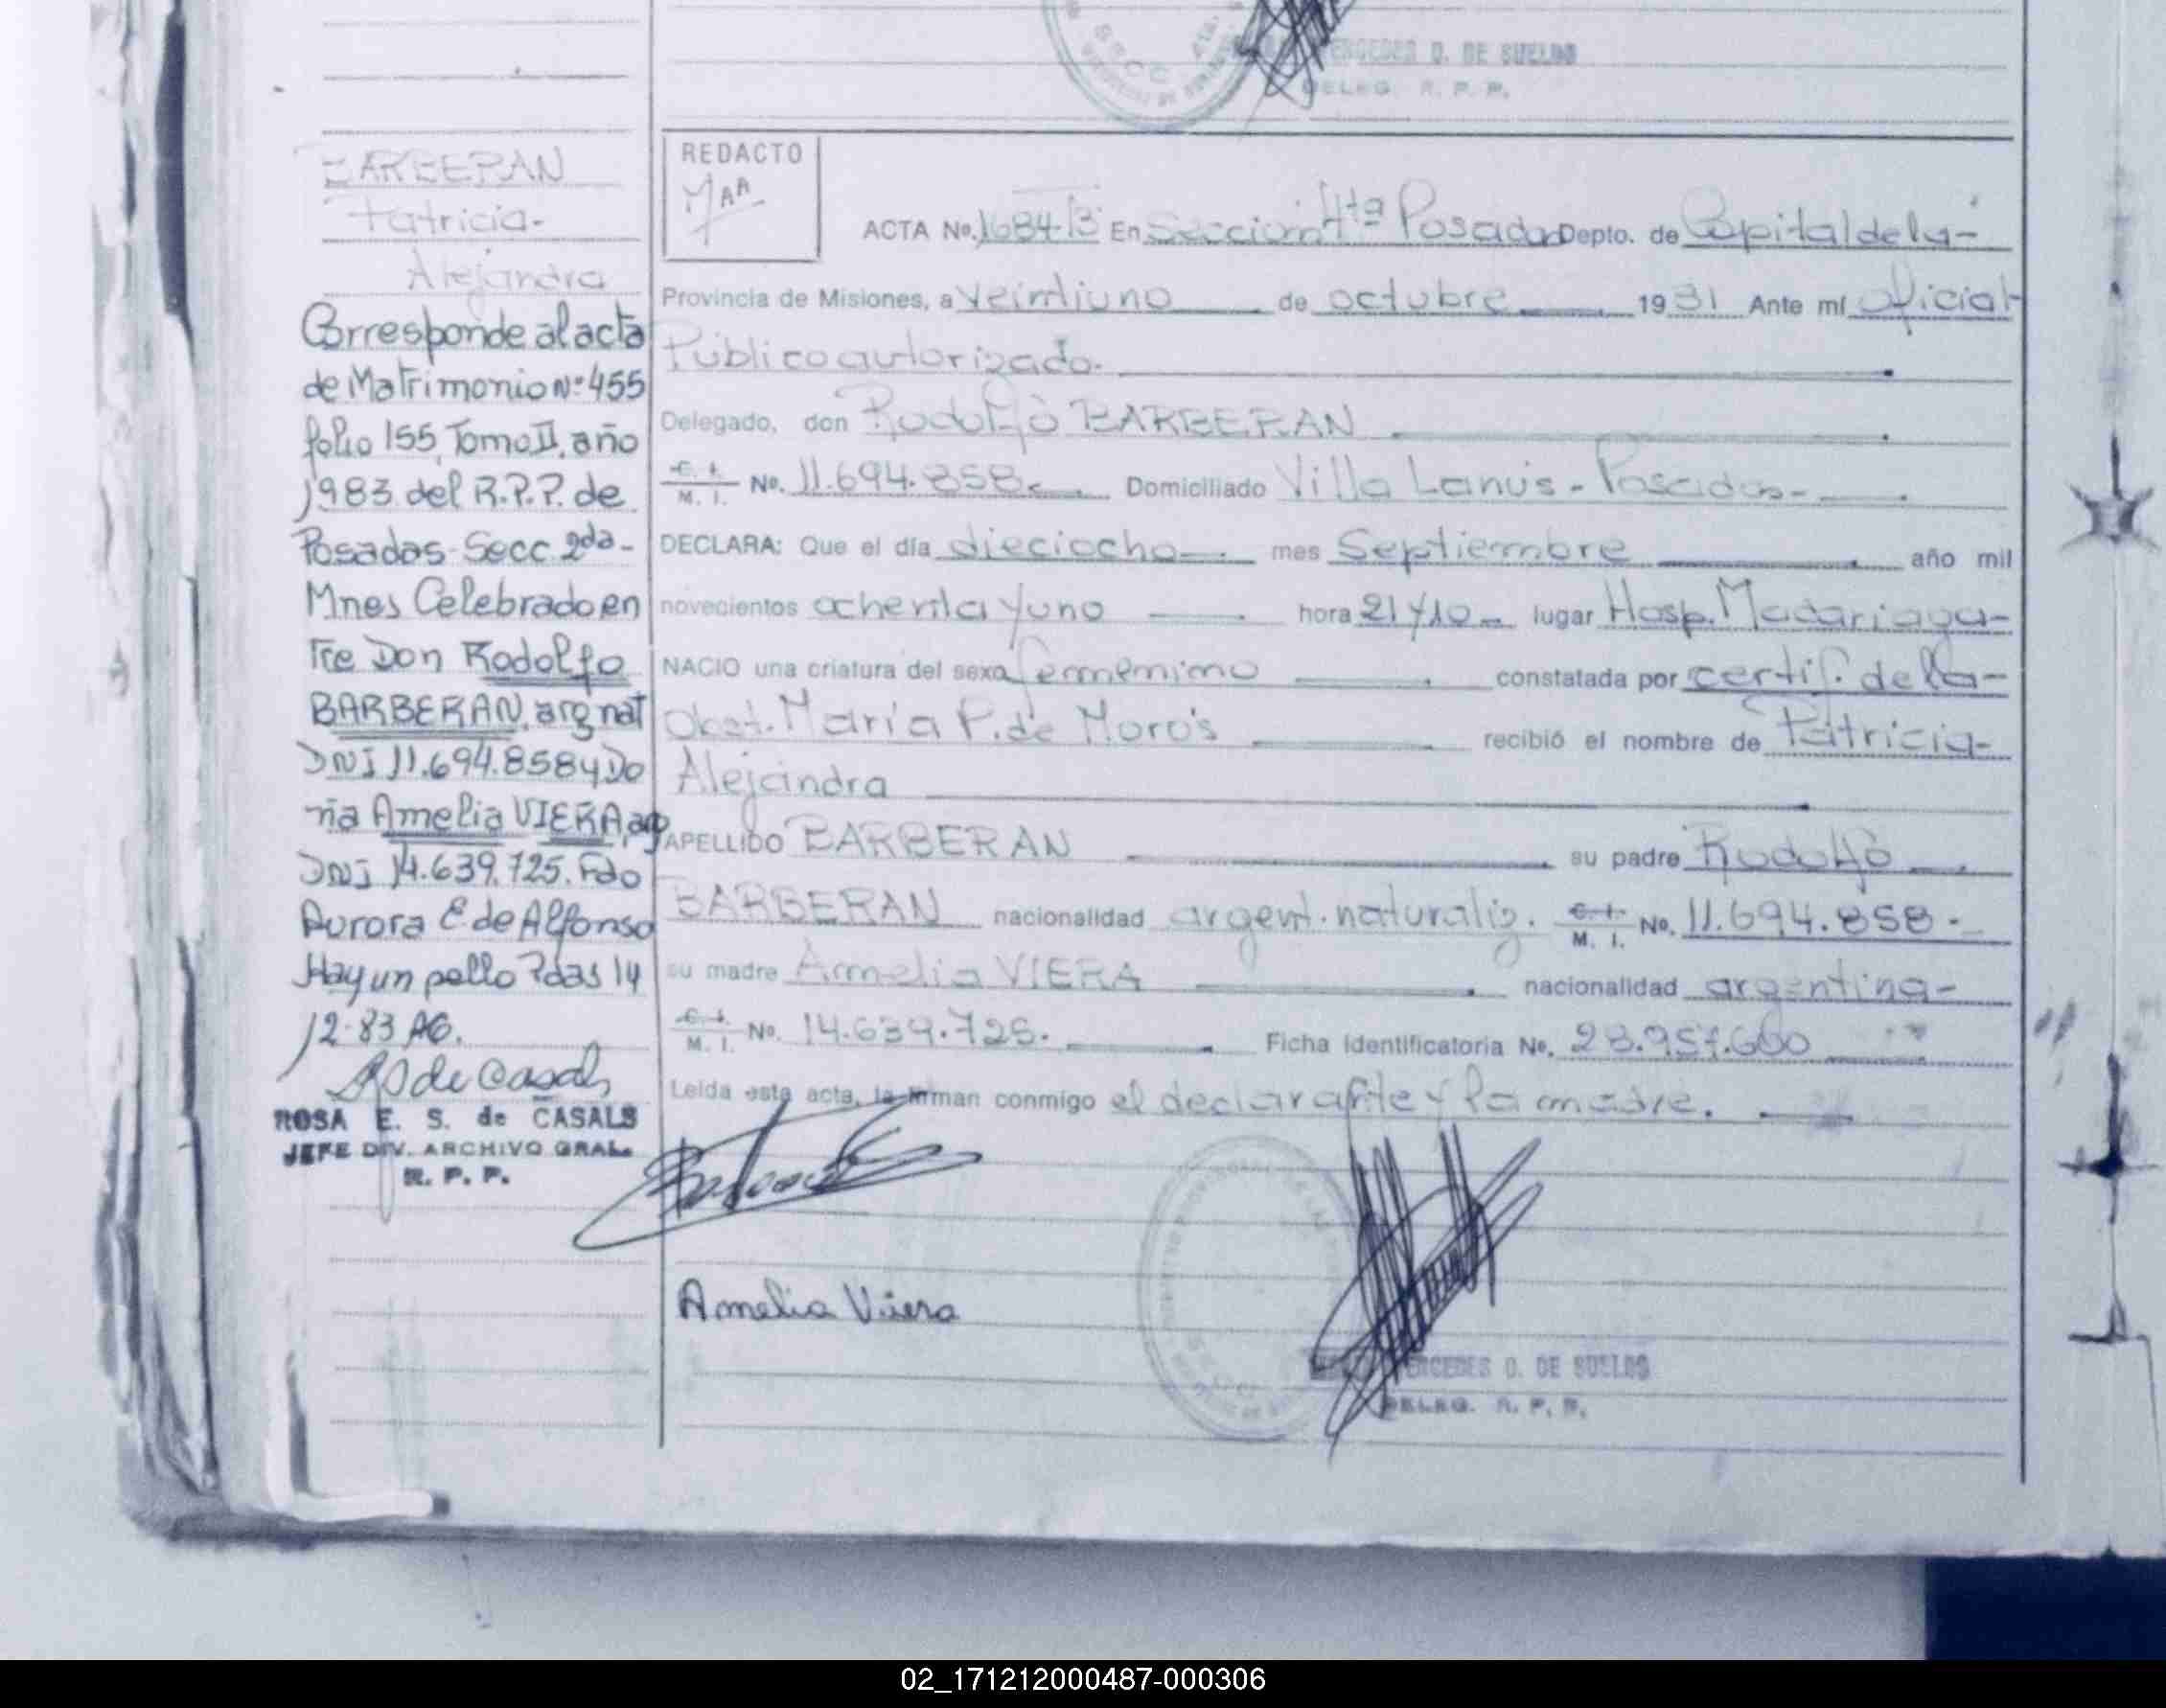 MERCEDES O. DE SUELDO
DELEG. R. P. P.
BARBERAN
Patricia-
Alejandra
Corresponde al acta
de Matrimonio Nº 455
folio 155, Tomo II, año
1983 del R.P.P. de
Posadas-Secc 2da-
Mnes Celebrado en
tre Don Rodolfo
BARBERAN, arg nat
DNI 11.694.858 y Do
ña Amelia VIERA, arg
DNI 14.639.725. Fdo
Aurora E. de Alfonso
Hay un sello Pdas 14
12-83 AG.
ROSA E. S. de CASALS
JEFE DIV. ARCHIVO GRAL.
R. P. P.
REDACTO
MAA
ACTA No. 1684-B En Sección 4ta Posadas Depto. de Capital de la-
Provincia de Misiones, a Veintiuno de octubre 1981 Ante mí oficial
Público autorizado.
Delegado, don Rodolfo BARBERAN
C. I. M. I. No. 11.694.858. Domiciliado Villa Lanús-Posadas-
DECLARA: Que el día dieciocho mes Septiembre año mil
novecientos ochenta y uno hora 21 y 10 lugar Hosp. Madariaga-
NACIO una criatura del sexo femenino constatada por certif. de la-
Obst. María P. de Moros recibió el nombre de Patricia-
Alejandra
APELLIDO BARBERAN su padre Rodolfo
BARBERAN nacionalidad argent. naturaliz. C. I. M. I. No. 11.694.858-
su madre Amelia VIERA nacionalidad argentina-
C. I. M. I. No. 14.639.725. Ficha Identificatoria No. 28.957.600
Leída esta acta, la firman conmigo el declarante y la madre.
Amelia Viera
MERCEDES O. DE SUELDO
DELEG. R. P. P.
02_171212000487-000306